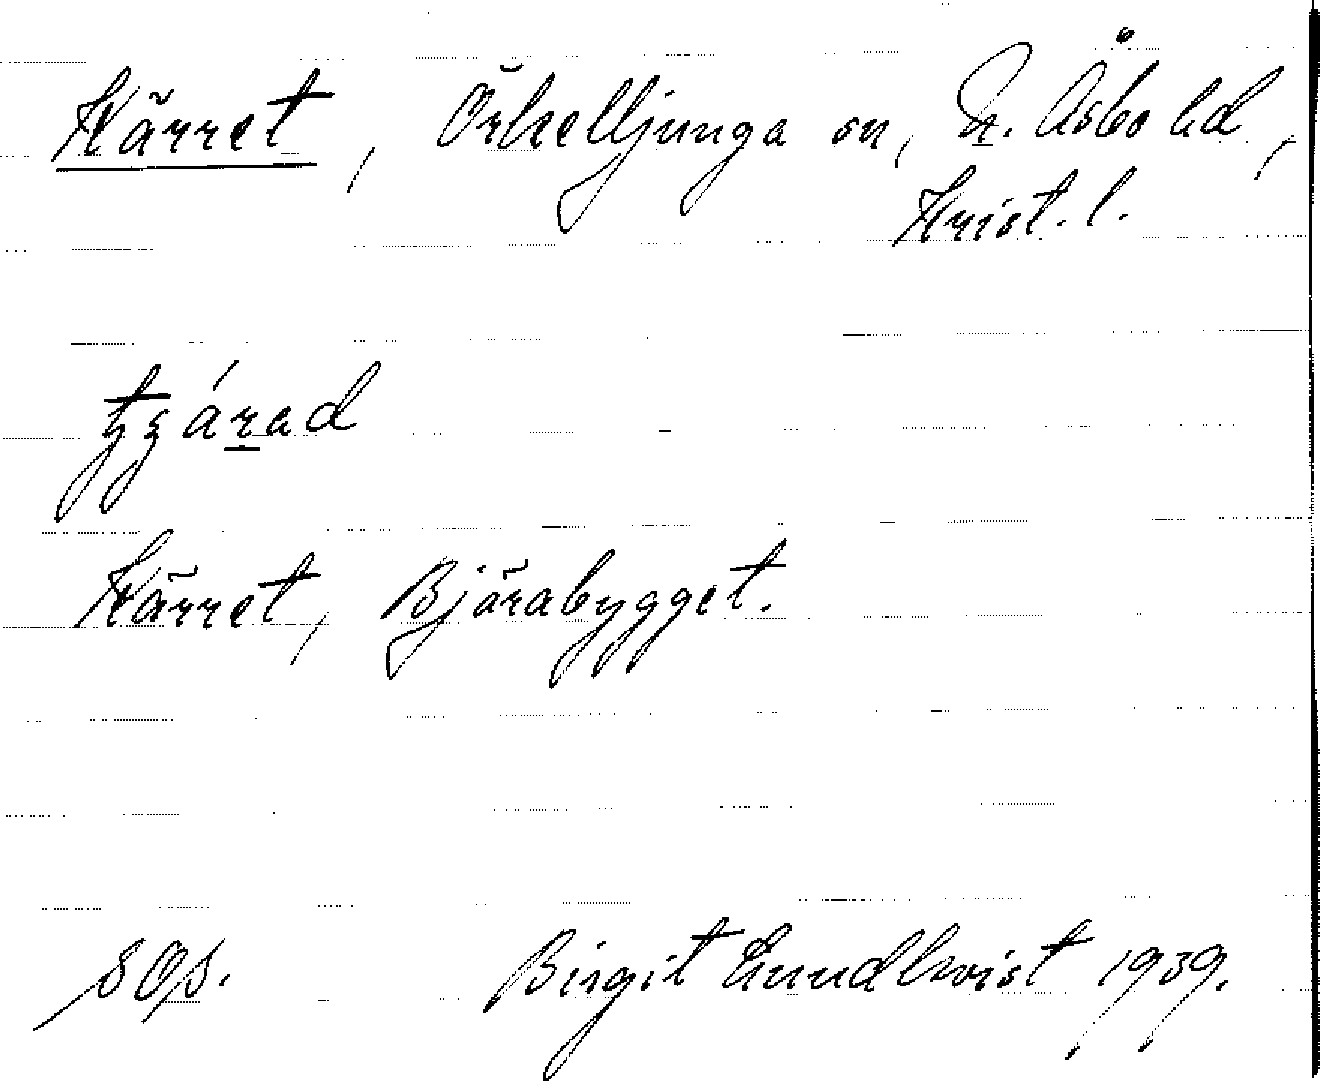 Kärret, Örkelljunga sn, N. Åsbo hd,
Krist. l.
Kärret, Björabygget.
SOS.
Birgit Lundkvist 1939.